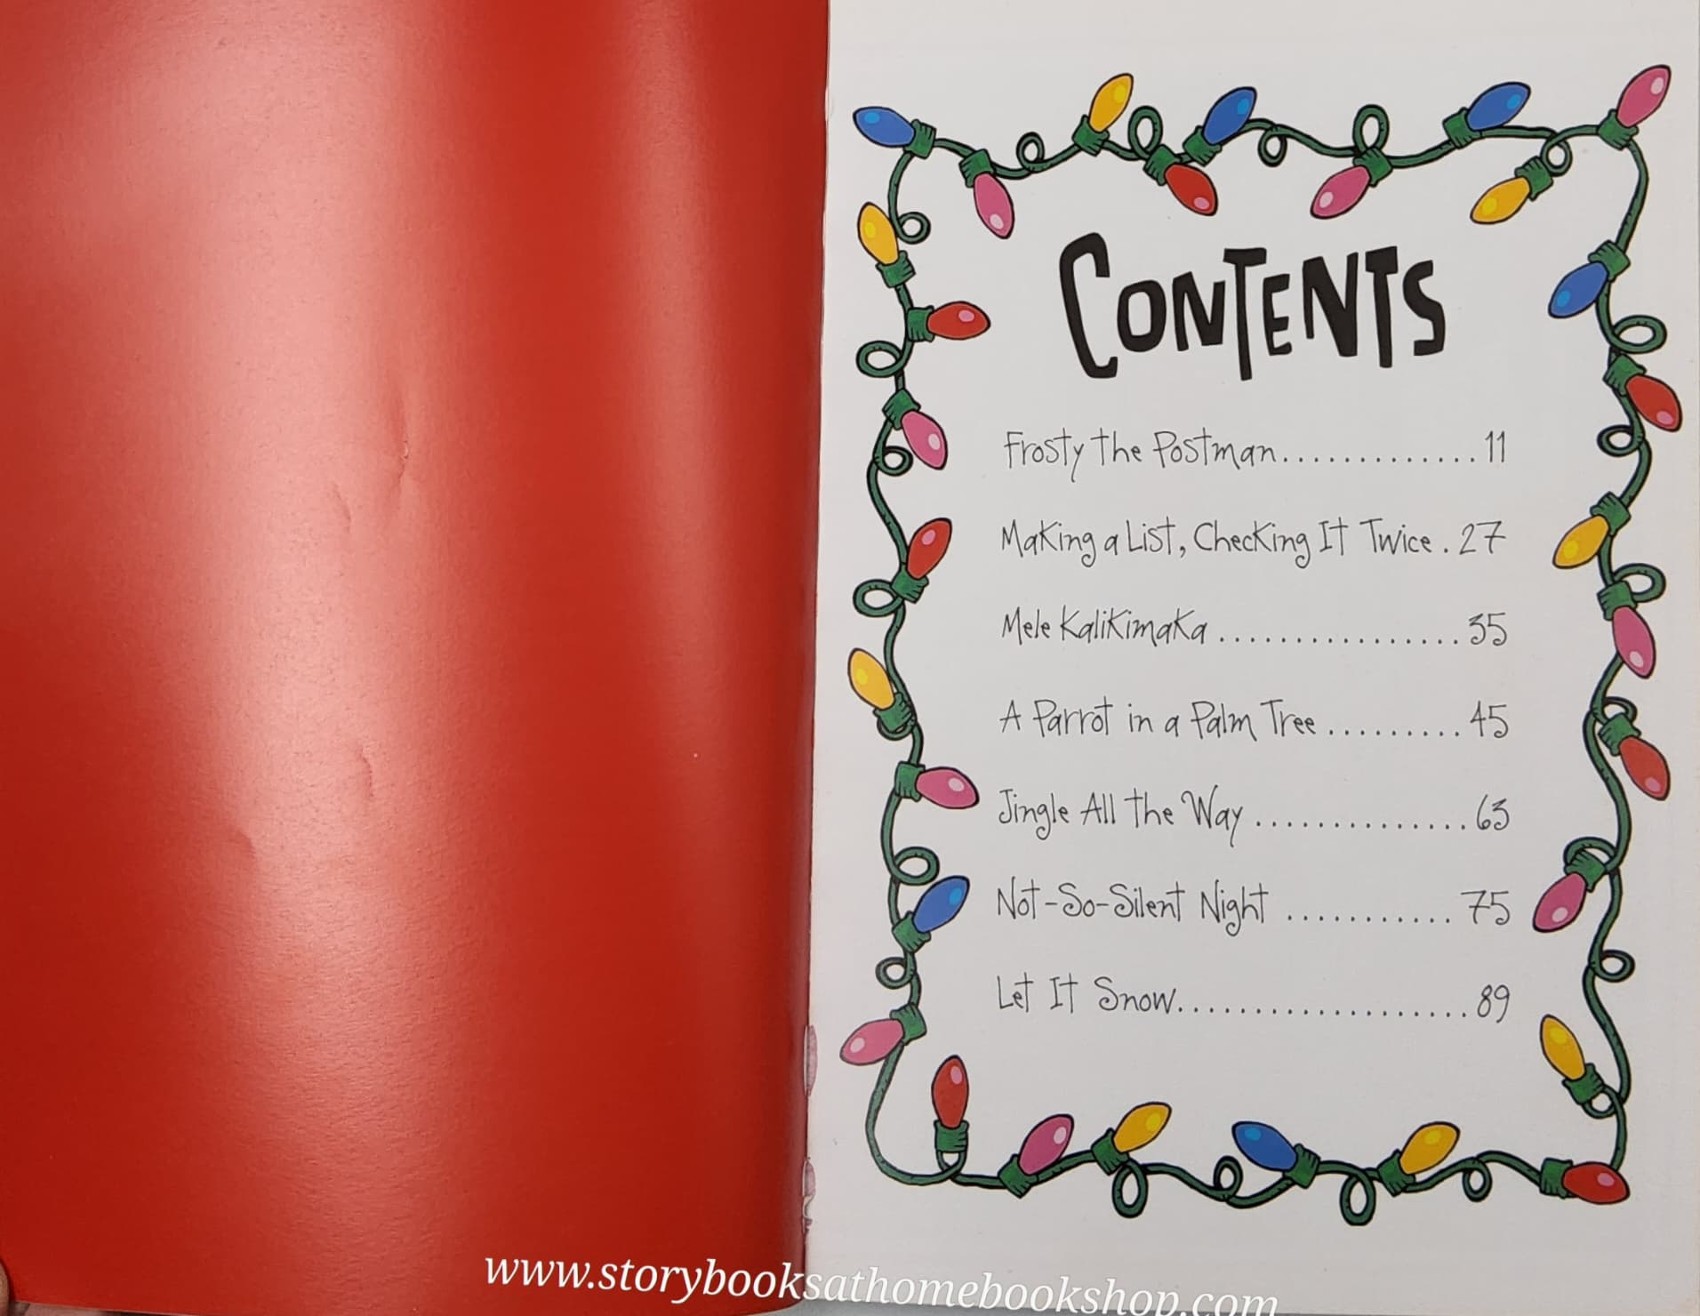 CONTENTS
Frosty the Postman............. 11
Making a List, Checking It Twice . 27
Mele Kalikimaka ................ 35
A Parrot in a Palm Tree ......... 45
Jingle All the Way .............. 63
Not-So-Silent Night ........... 75
Let It Snow................... 89
www.storybooksathomebookshop.com